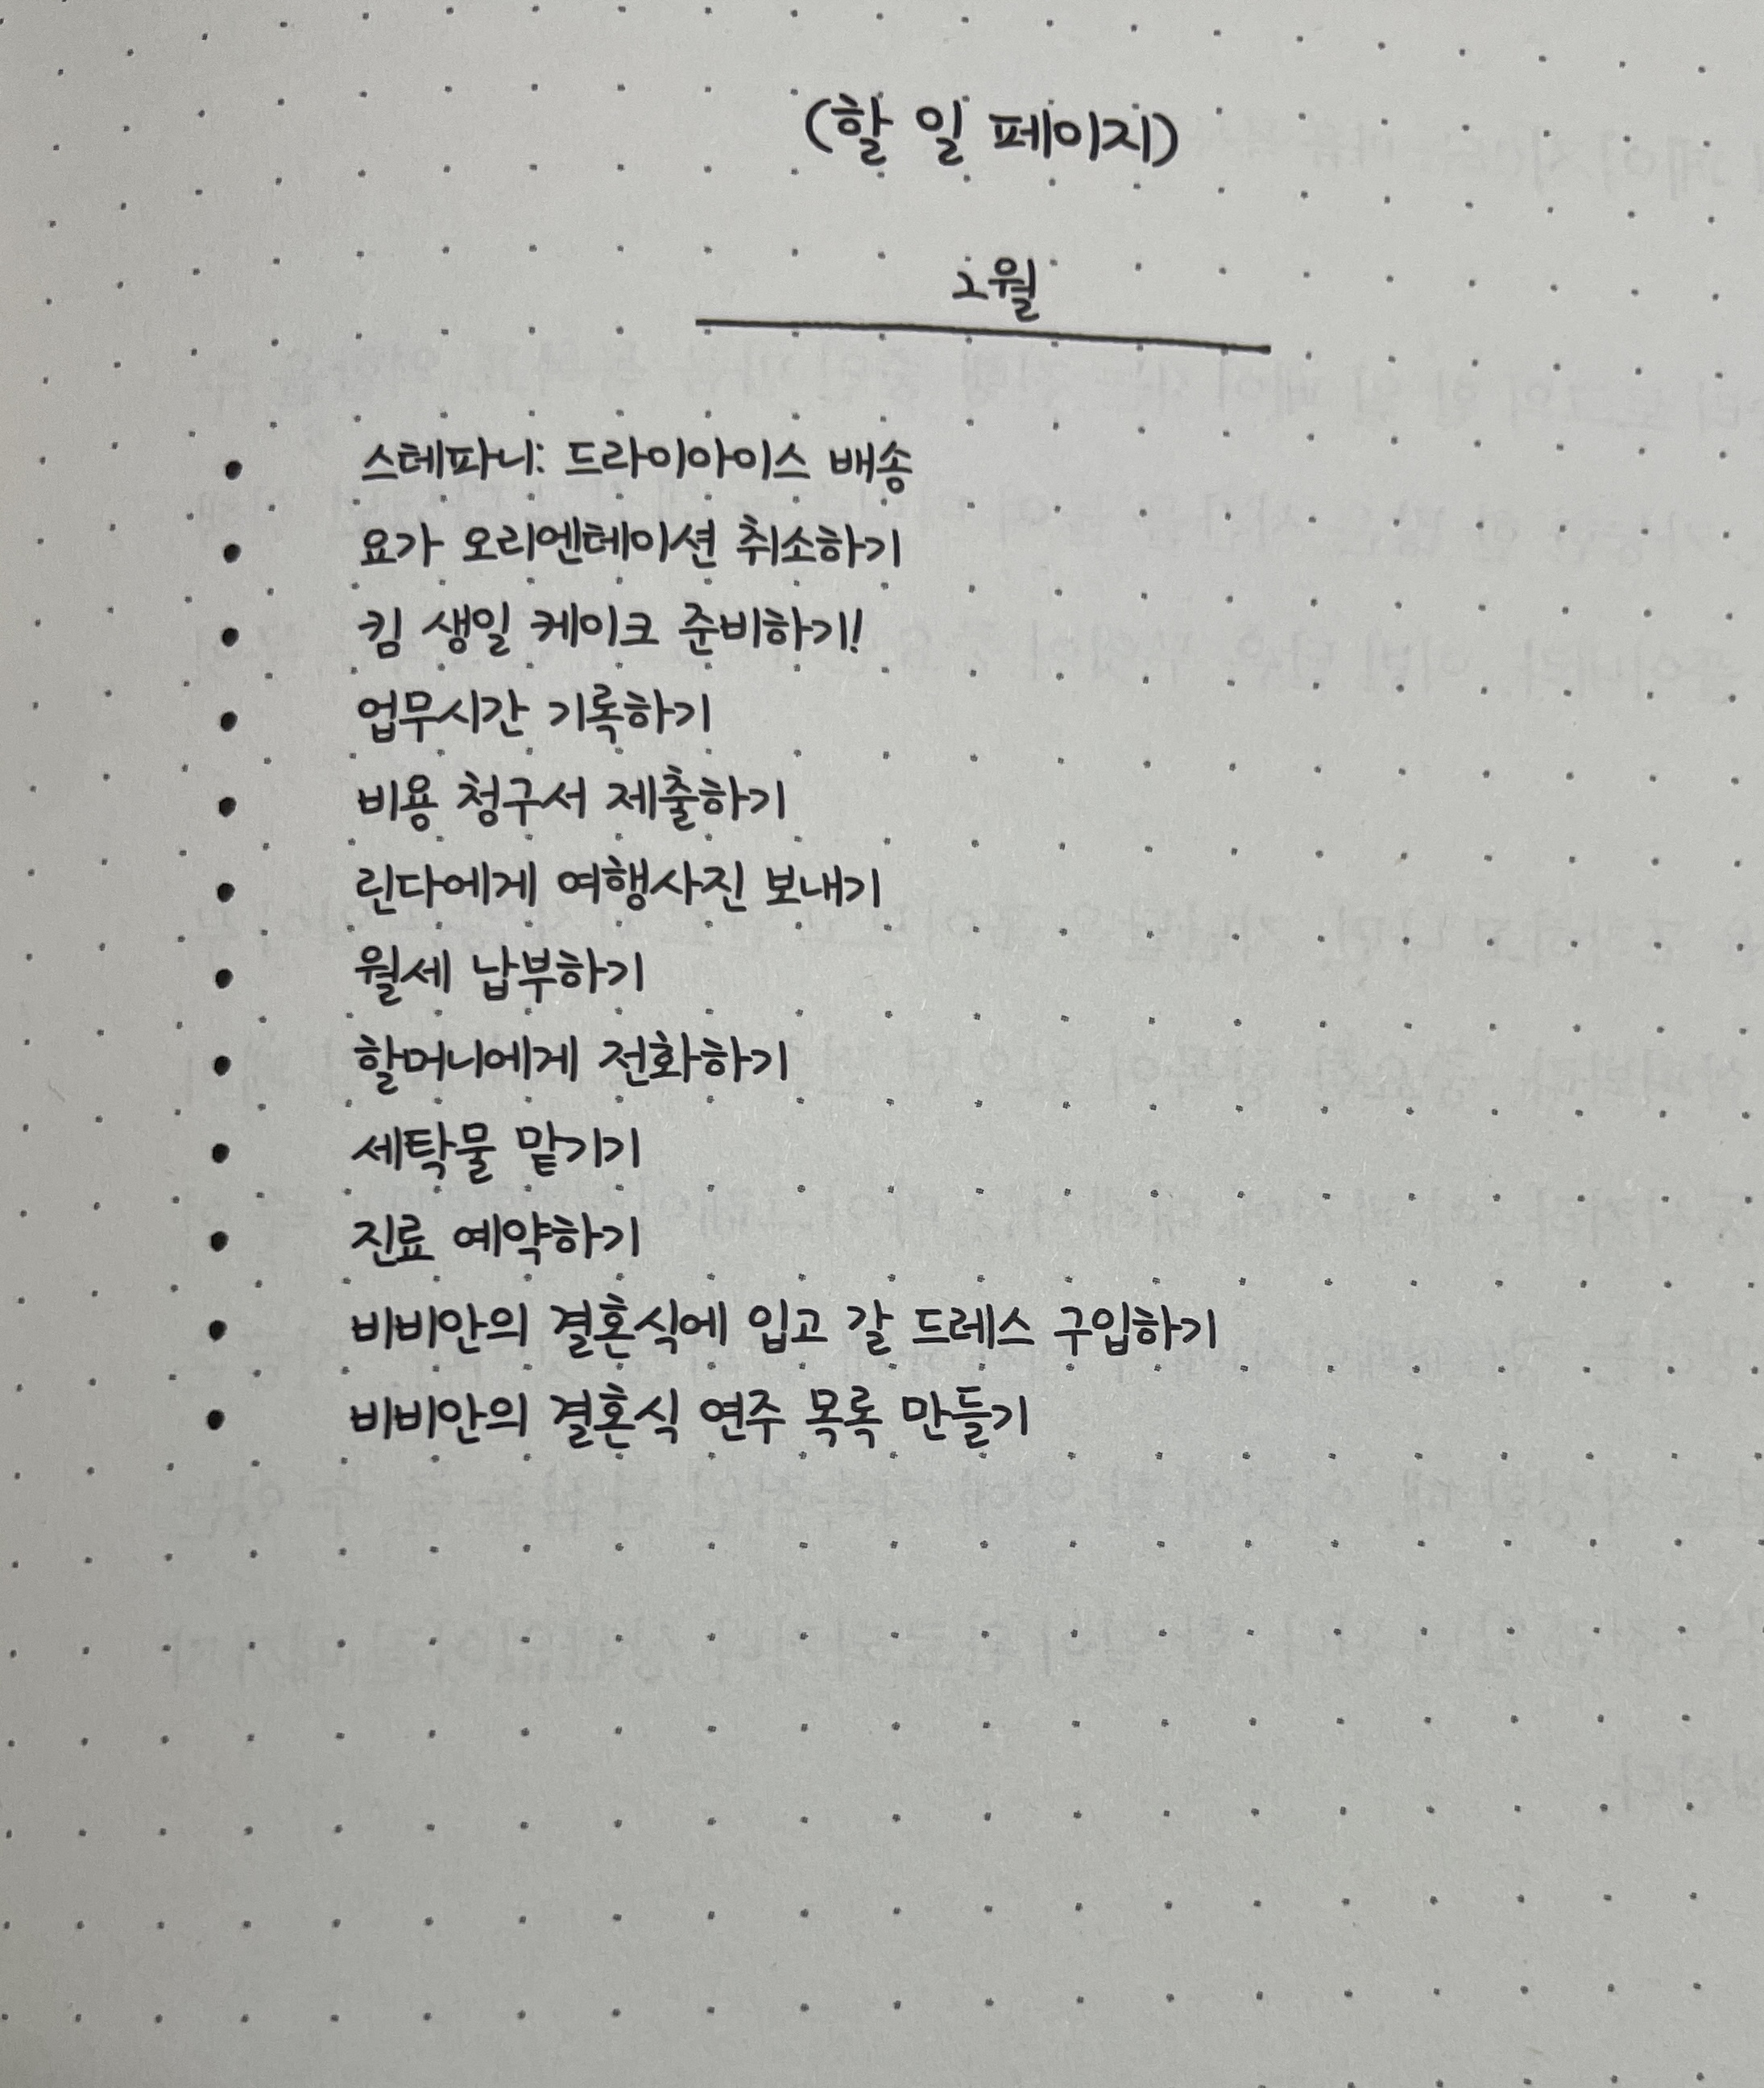 (할 일 페이지)
2월
• 스테파니: 드라이아이스 배송
• 요가 오리엔테이션 취소하기
• 킴 생일 케이크 준비하기!
• 업무시간 기록하기
• 비용 청구서 제출하기
• 린다에게 여행사진 보내기
• 월세 납부하기
• 할머니에게 전화하기
• 세탁물 맡기기
• 진료 예약하기
• 비비안의 결혼식에 입고 갈 드레스 구입하기
• 비비안의 결혼식 연주 목록 만들기